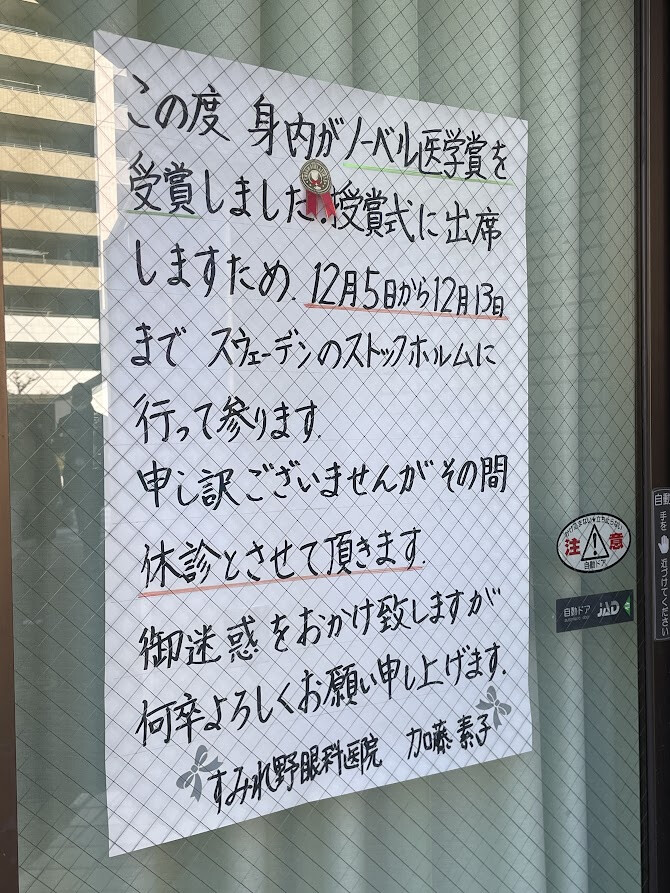 この度 身内がノーベル医学賞を
受賞しました.授賞式に出席
しますため. 12月5日から12月13日
まで スウェーデンのストックホルムに
行って参ります.
申し訳ございませんがその間
休診とさせて頂きます.
御迷惑をおかけ致しますが
何卒よろしくお願い申し上げます.
すみれ野眼科医院 加藤素子
かけ込まない★立ち止らない
注意
自動ドア
自動ドア JAD
自動
手を近づけてください